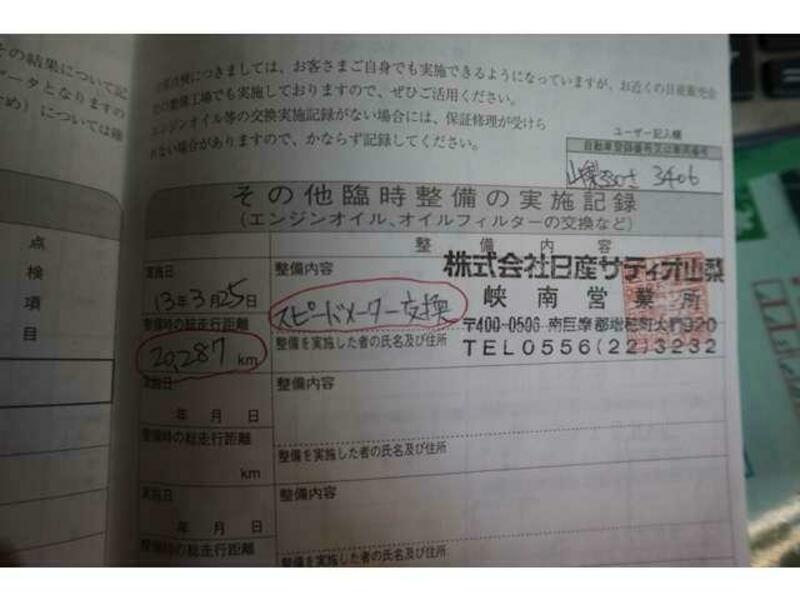 その結果について記
データとなりますの
め）については確
点
検
項
目
につきましては、お客さまご自身でも実施できるようになっていますが、お近くの日産販売会
の整備工場でも実施しておりますので、ぜひご活用ください。
エンジンオイル等の交換実施記録がない場合には、保証修理が受けら
れない場合がありますので、かならず記録してください。
ユーザー記入欄
自動車登録番号又は車両番号
山梨530 3406
その他臨時整備の実施記録
（エンジンオイル、オイルフィルターの交換など）
整備内容
実施日
13年3月25日
整備内容
スピードメーター交換
株式会社日産サティオ山梨
峡南営業所
〒400-0506 南巨摩郡増穂町大椚920
TEL0556(22)3232
整備時の総走行距離
20,287 km
整備を実施した者の氏名及び住所
実施日
年 月 日
整備内容
整備時の総走行距離
km
整備を実施した者の氏名及び住所
実施日
年 月 日
整備内容
整備時の総走行距離
整備を実施した者の氏名及び住所